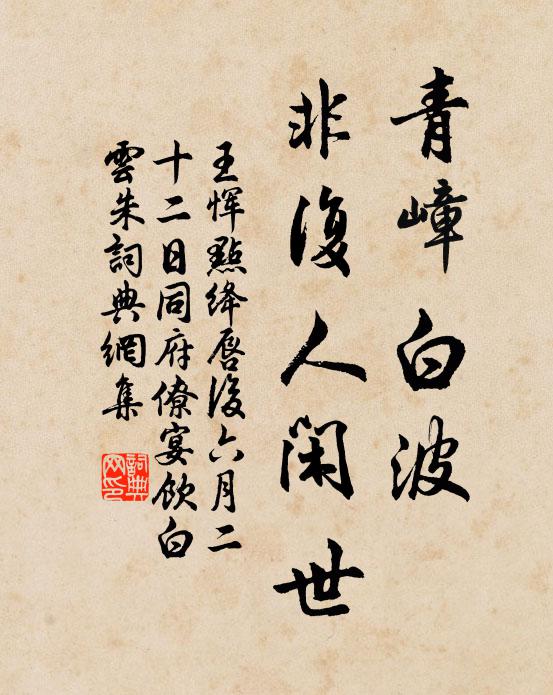 青嶂白波
非復人閑世
王惲點絳唇後六月二
十二日同府僚宴飲白
雲朱詞典網集
詞典
网印